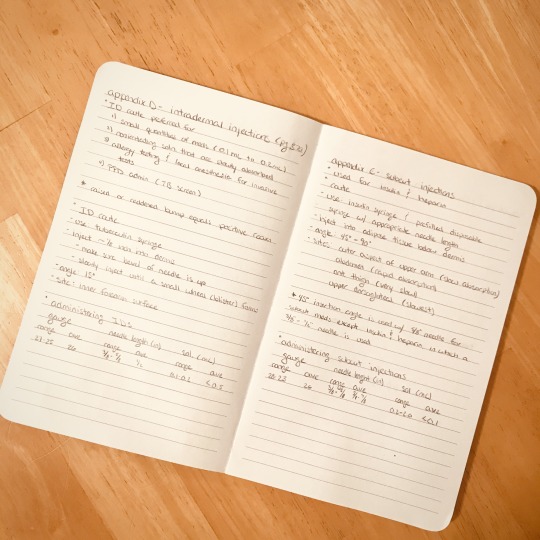 appendix D - intradermal injections (pg 820)
• ID route preferred for
1) small quantities of meds (0.1 mL to 0.2 mL)
2) nonirritating soln that are slowly absorbed
3) allergy testing & local anesthetic for invasive
tests
4) PPD admin (TB screen)
* raised or reddened bump equals positive
• ID route
• use tuberculin syringe
• inject into dermis
- make sure bevel of needle is up
- slowly inject until a small wheal (blister) forms
• angle 15°
• site: inner forearm surface
• administering IDs
gauge needle length (in) sol. (mL)
range ave range ave range ave
26 3/8 - 5/8 1/2 0.1-0.2 <0.5
appendix C - subcut injections
• used for insulin & heparin
• route
• use insulin syringe / prefilled disposable
syringe w/ appropriate needle length
• inject into adipose tissue below dermis
• angle: 45° - 90°
• sites: outer aspect of upper arm (slow absorption)
abdomen (rapid absorption)
ant thigh (very slow)
upper dorsogluteal (slowest)
* 45° insertion angle is used w/ 5/8" needle for
subcut meds except insulin & heparin in which a
needle is used
• administering subcut injections
gauge needle lenght (in) sol (mL)
range ave range ave range ave